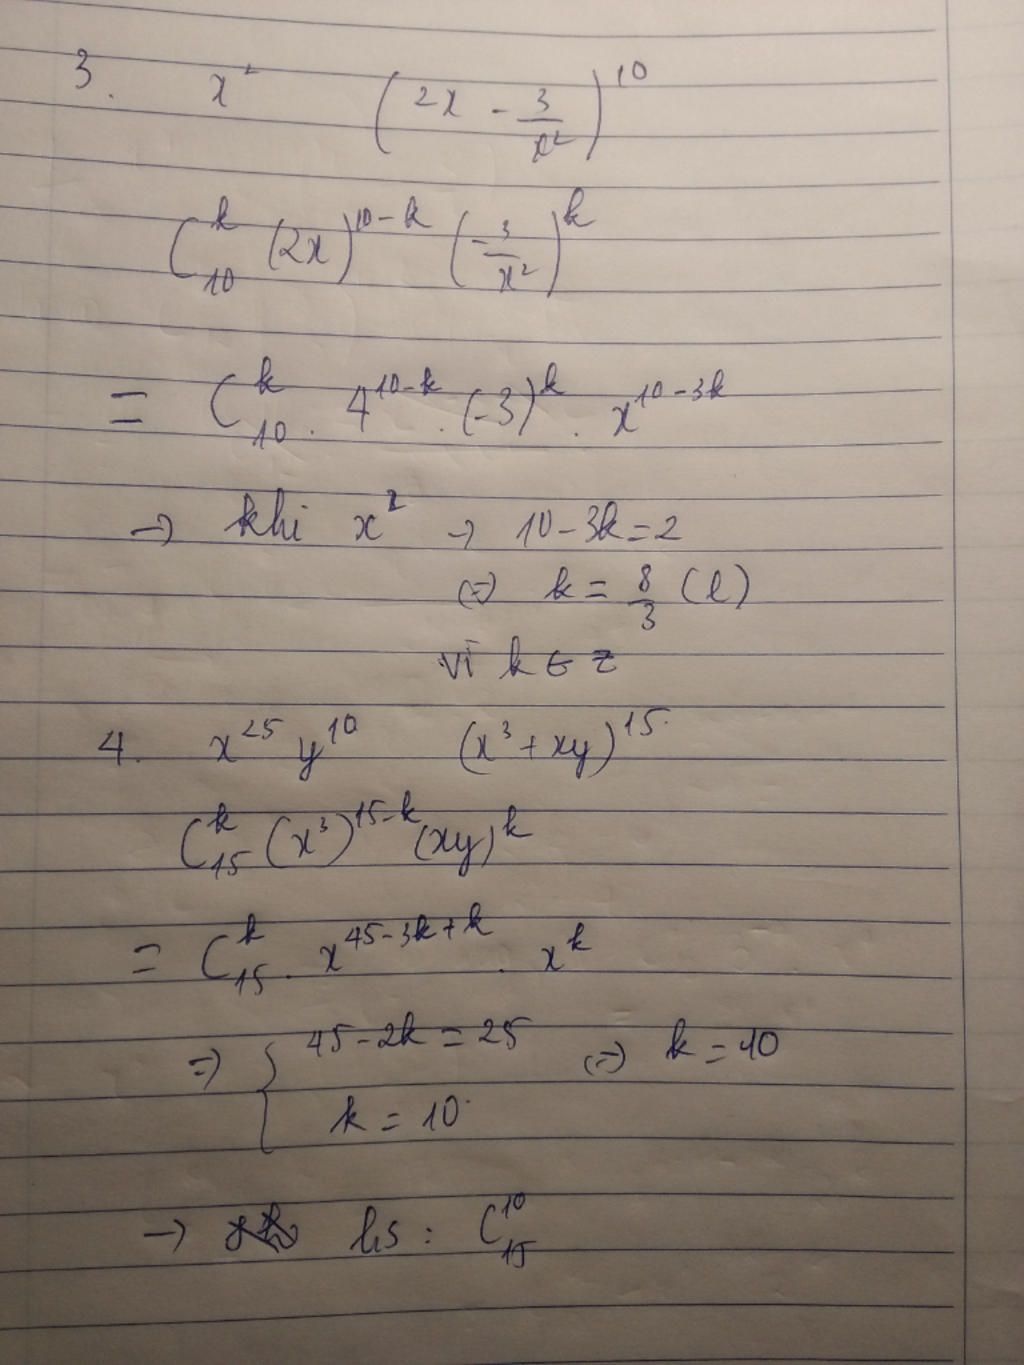 3. x² (2x - 3/x²)¹⁰
C₁₀ᵏ (2x)¹⁰⁻ᵏ (-3/x²)ᵏ
= C₁₀ᵏ . 4¹⁰⁻ᵏ . (-3)ᵏ . x¹⁰⁻³ᵏ
→ khi x² → 10 - 3k = 2
(=) k = 8/3 (l)
vì k ∈ Z
4. x²⁵ y¹⁰ (x³ + xy)¹⁵
C₁₅ᵏ (x³)¹⁵⁻ᵏ (xy)ᵏ
= C₁₅ᵏ . x⁴⁵⁻³ᵏ⁺ᵏ . xᵏ
=) { 45 - 2k = 25 (=) k = 10
k = 10
→ hs : C₁₅¹⁰